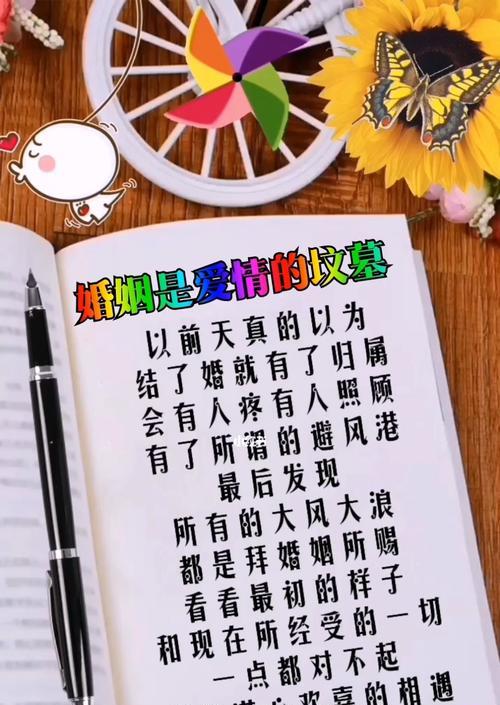 婚姻是爱情的坟墓
以前天真的以为
结了婚就有了归属
会有人疼有人照顾
有了所谓的避风港
最后发现
所有的大风大浪
都是拜婚姻所赐
看看最初的样子
和现在所经受的一切
一点都对不起
满心欢喜的相遇